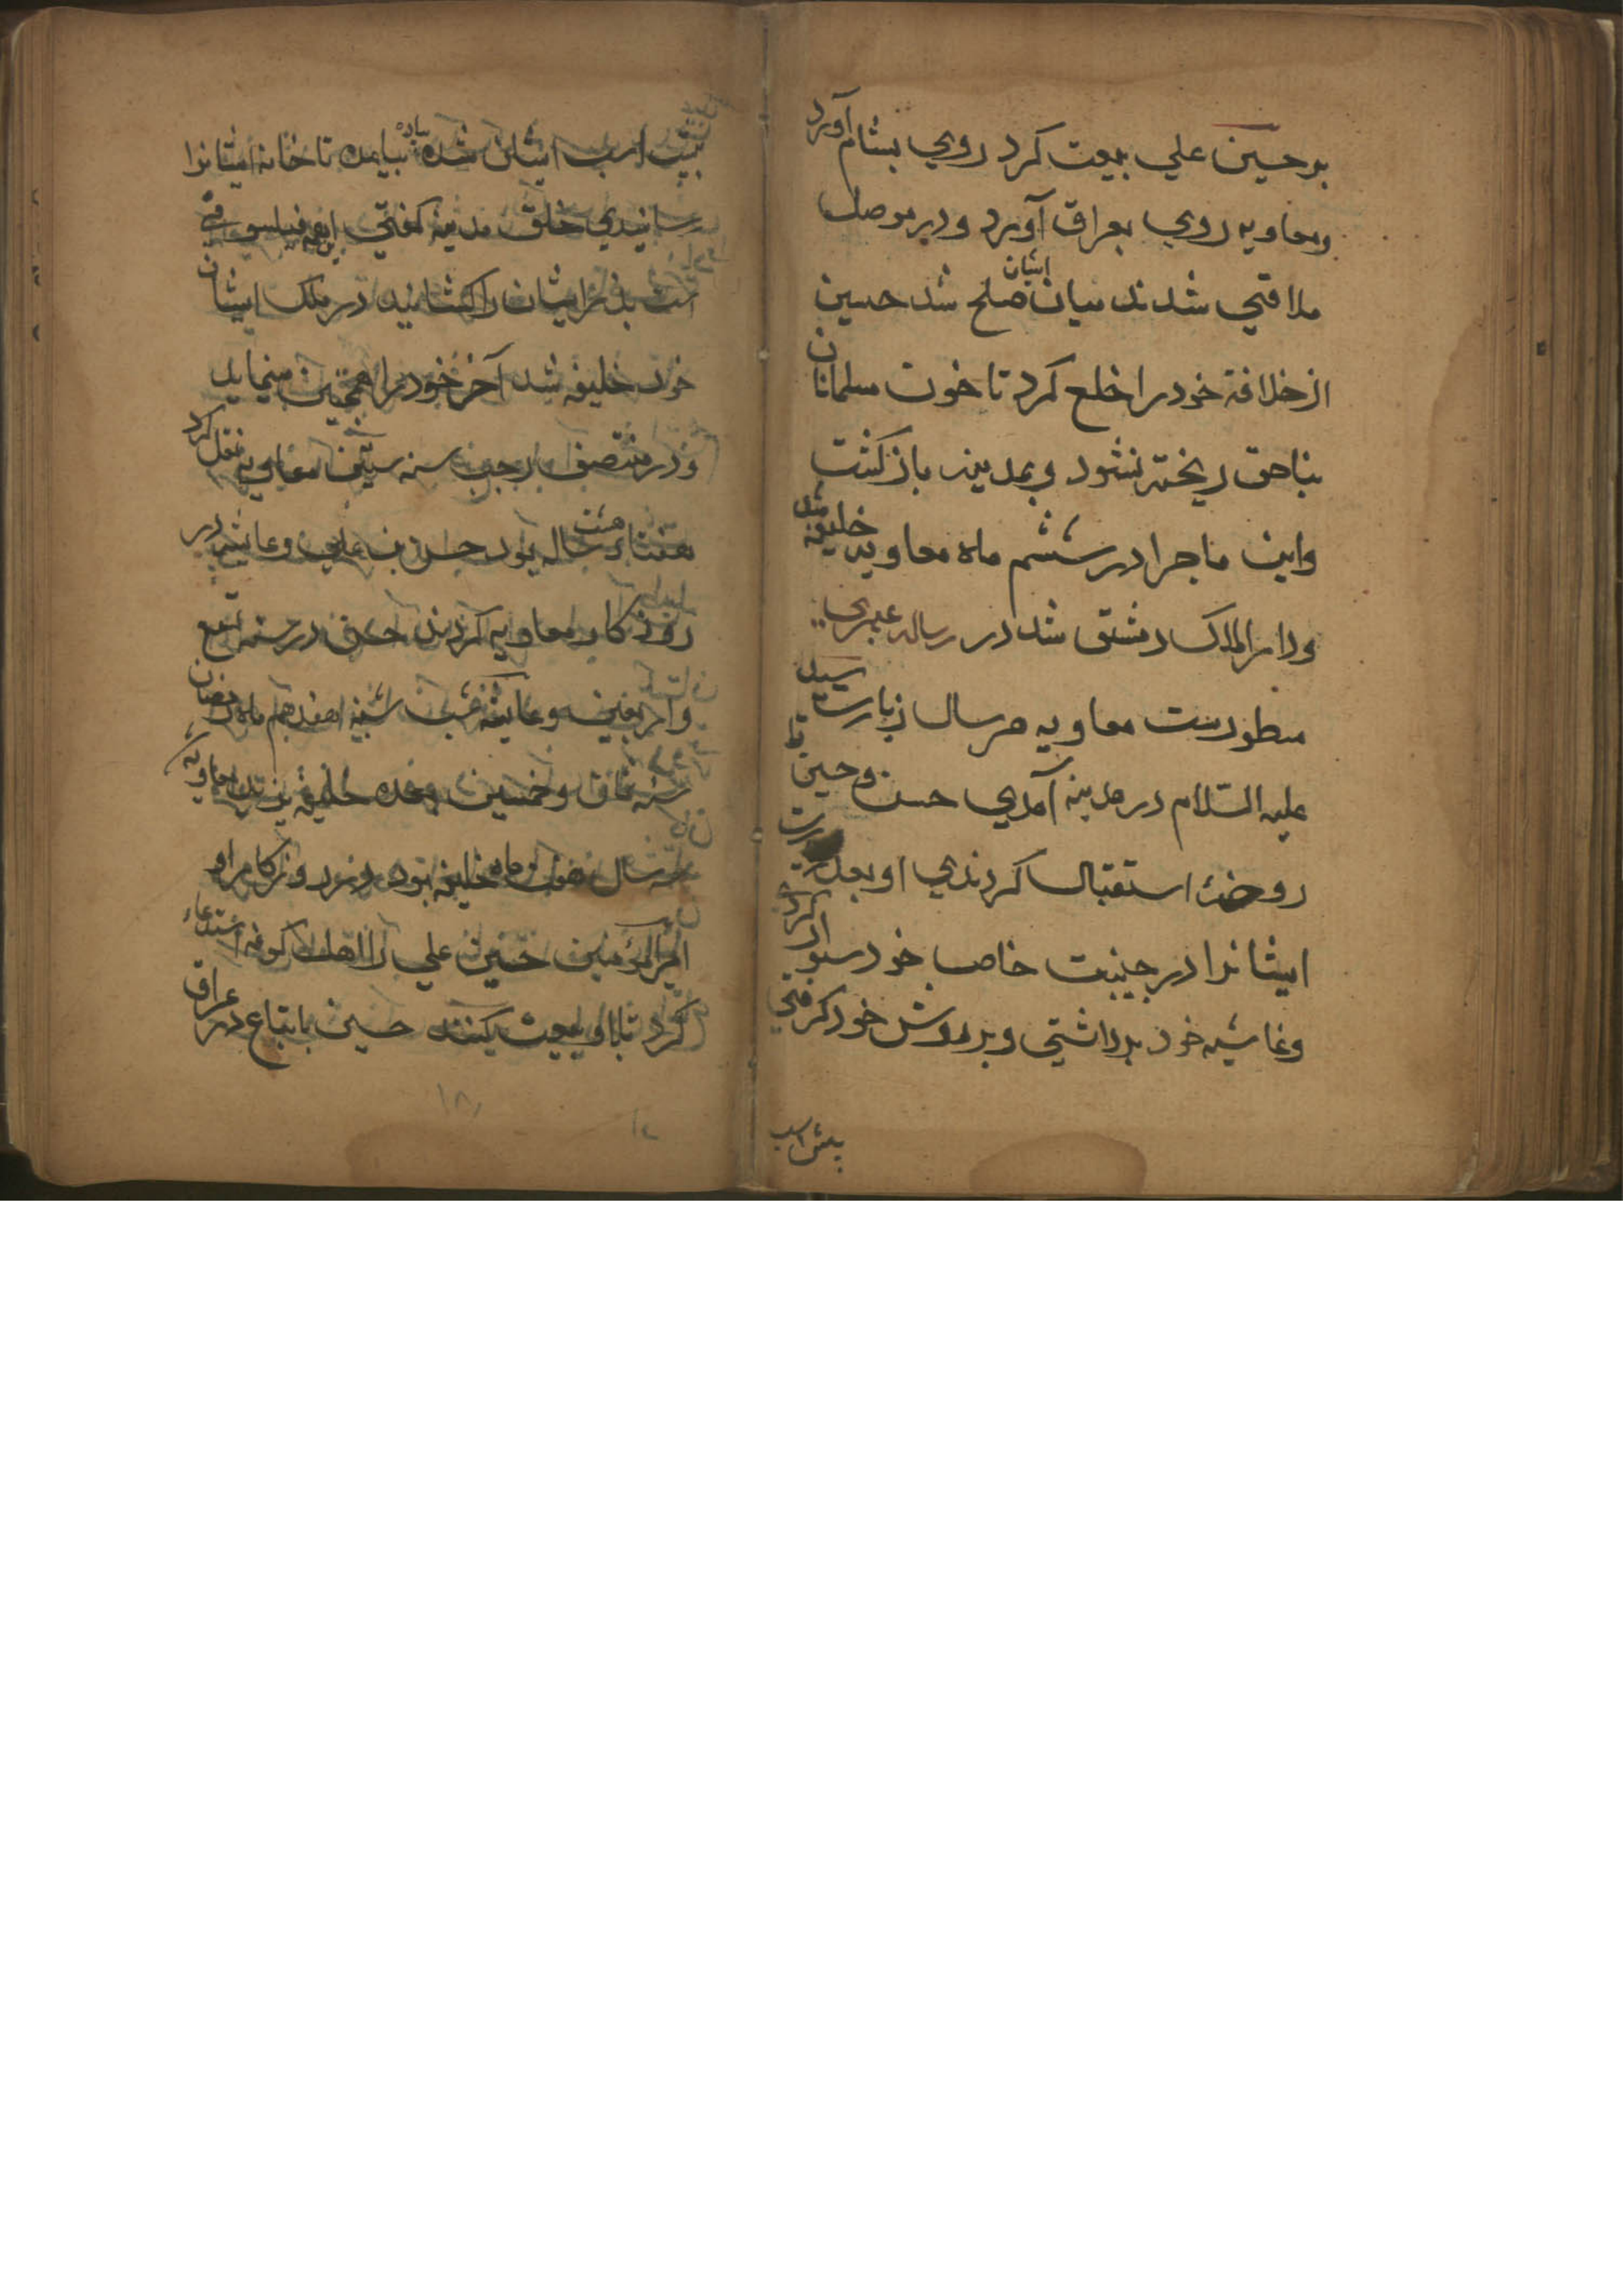 بر حسین علی بیعت کرد روی بشام آورد
ومعاویه روی بعراق آورد ودر موصل
ملاقی شدند میان ایشان صلح شد حسین
از خلافة خود را خلع کرد تا خون مسلمانان
بناحق ریخته نشود وبمدینه باز کشت
واین ماجرا در ششم ماه معاویه خلیفه شد
ودار الملک دمشق شد در رساله
مسطورست معاویه هر سال زیارت سید
علیه السّلام در مدینه آمدی حسن وحسین تا
روضه استقبال کردندی او بعد
ایشانرا در جنیبت خاص خود سوار کردی
وغاشیه خود برداشتی وبر دوش خود کرفتی
پیش اسب
پیش اسب ایشان شده پیاده بیامده تا خانه ایشانرا
رسانیدی خلق مدینه کفتی این چه
است پدر ایشان را کشانید در ملک ایشان
خود خلیفه شد آخر خود را همچنین مینماید
ودر منتصف رجب سنه ستین معاویه نقل کرد
هفتاد هشت ساله بود حسن بن علی وعایشه در
روزکار معاویه کردند حسن در سنه تسع
واربعین وعایشه شب شنبه هفدهم ماه رمضان
سنه ثمان وخمسین وبعده خلیفه یزید معاویه
سه سال نه ماه خلیفه بود در روزکار او
امیر المؤمنین حسین علی را اهل کوفه استدعاء
کرد تا با او بیعت بکنند حسین با تباع در عراق